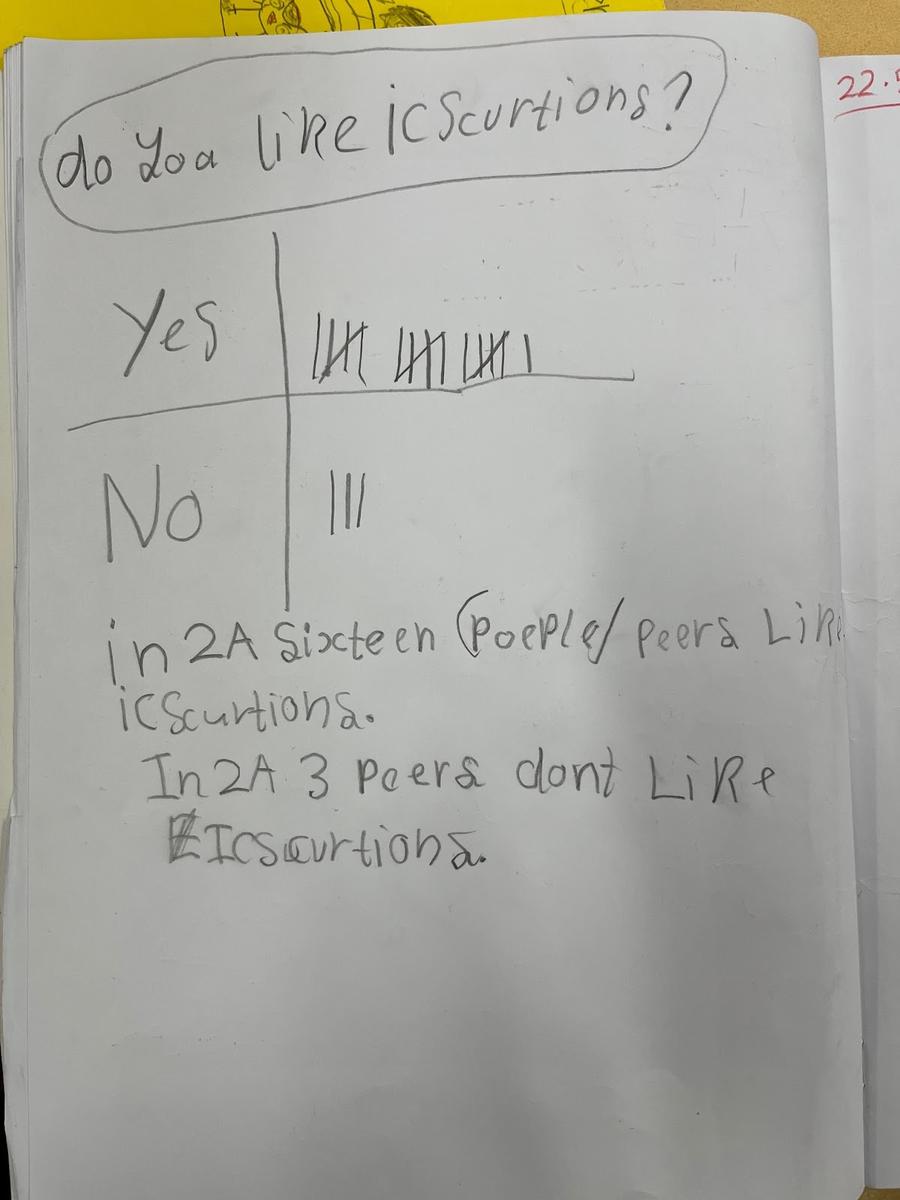 do you like icscurtions?
22.
Yes
No
in 2A Sixteen (Poeple/ Peers Like
icscurtions.
In 2A 3 Peers dont Like
Icscurtions.